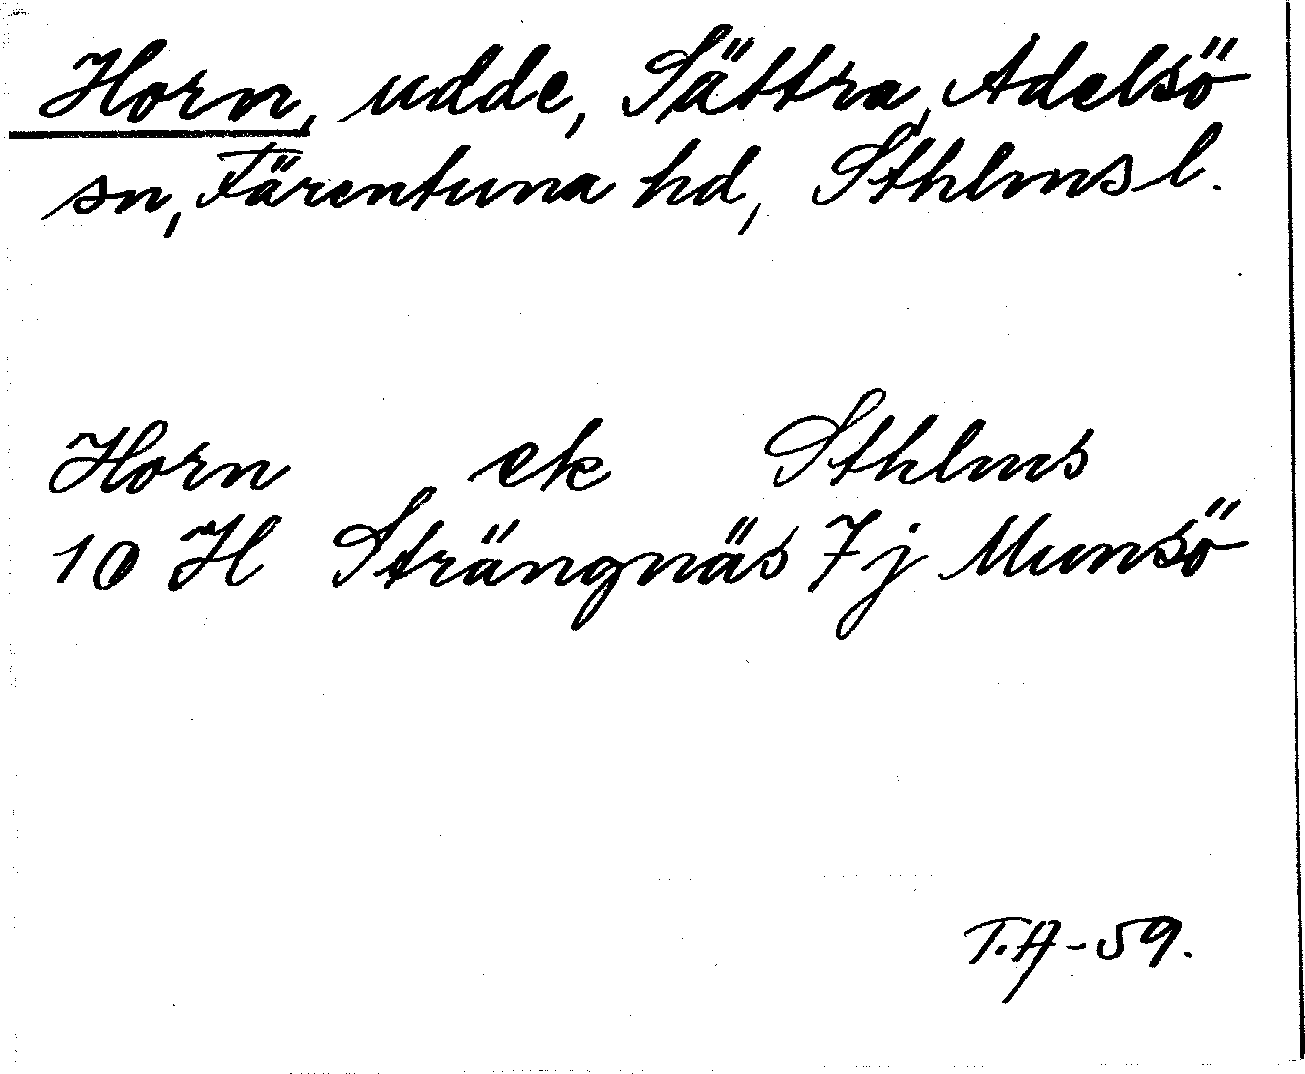 Horn, udde, Sättra, Adelsö
sn, Färentuna hd, Sthlms l.
Horn ek Sthlms
10 H Strängnäs 7j Munsö
T.A-59.